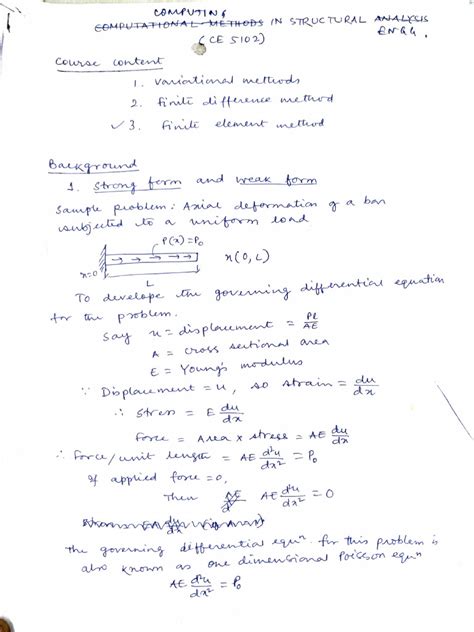 COMPUTING
COMPUTATIONAL METHODS IN STRUCTURAL ANALYSIS
ENGG.
(CE 5102)
Course content
1. Variational methods
2. Finite difference method
✓ 3. Finite element method
Background
1. Strong form and weak form
Sample problem: Axial deformation of a bar
subjected to a uniform load
P(x) = P₀
x(0, L)
x=0
L
To develope the governing differential equation
for the problem.
Say u = displacement = PL/AE
A = cross sectional area
E = Young's modulus
∵ Displacement = u, so strain = du/dx
∴ Stress = E du/dx
Force = Area x stress = AE du/dx
∴ Force/unit length = AE d²u/dx² = P₀
If applied force = 0,
Then AE d²u/dx² = 0
The governing differential equⁿ for this problem is
also known as one dimensional Poisson equⁿ
AE d²u/dx² = P₀